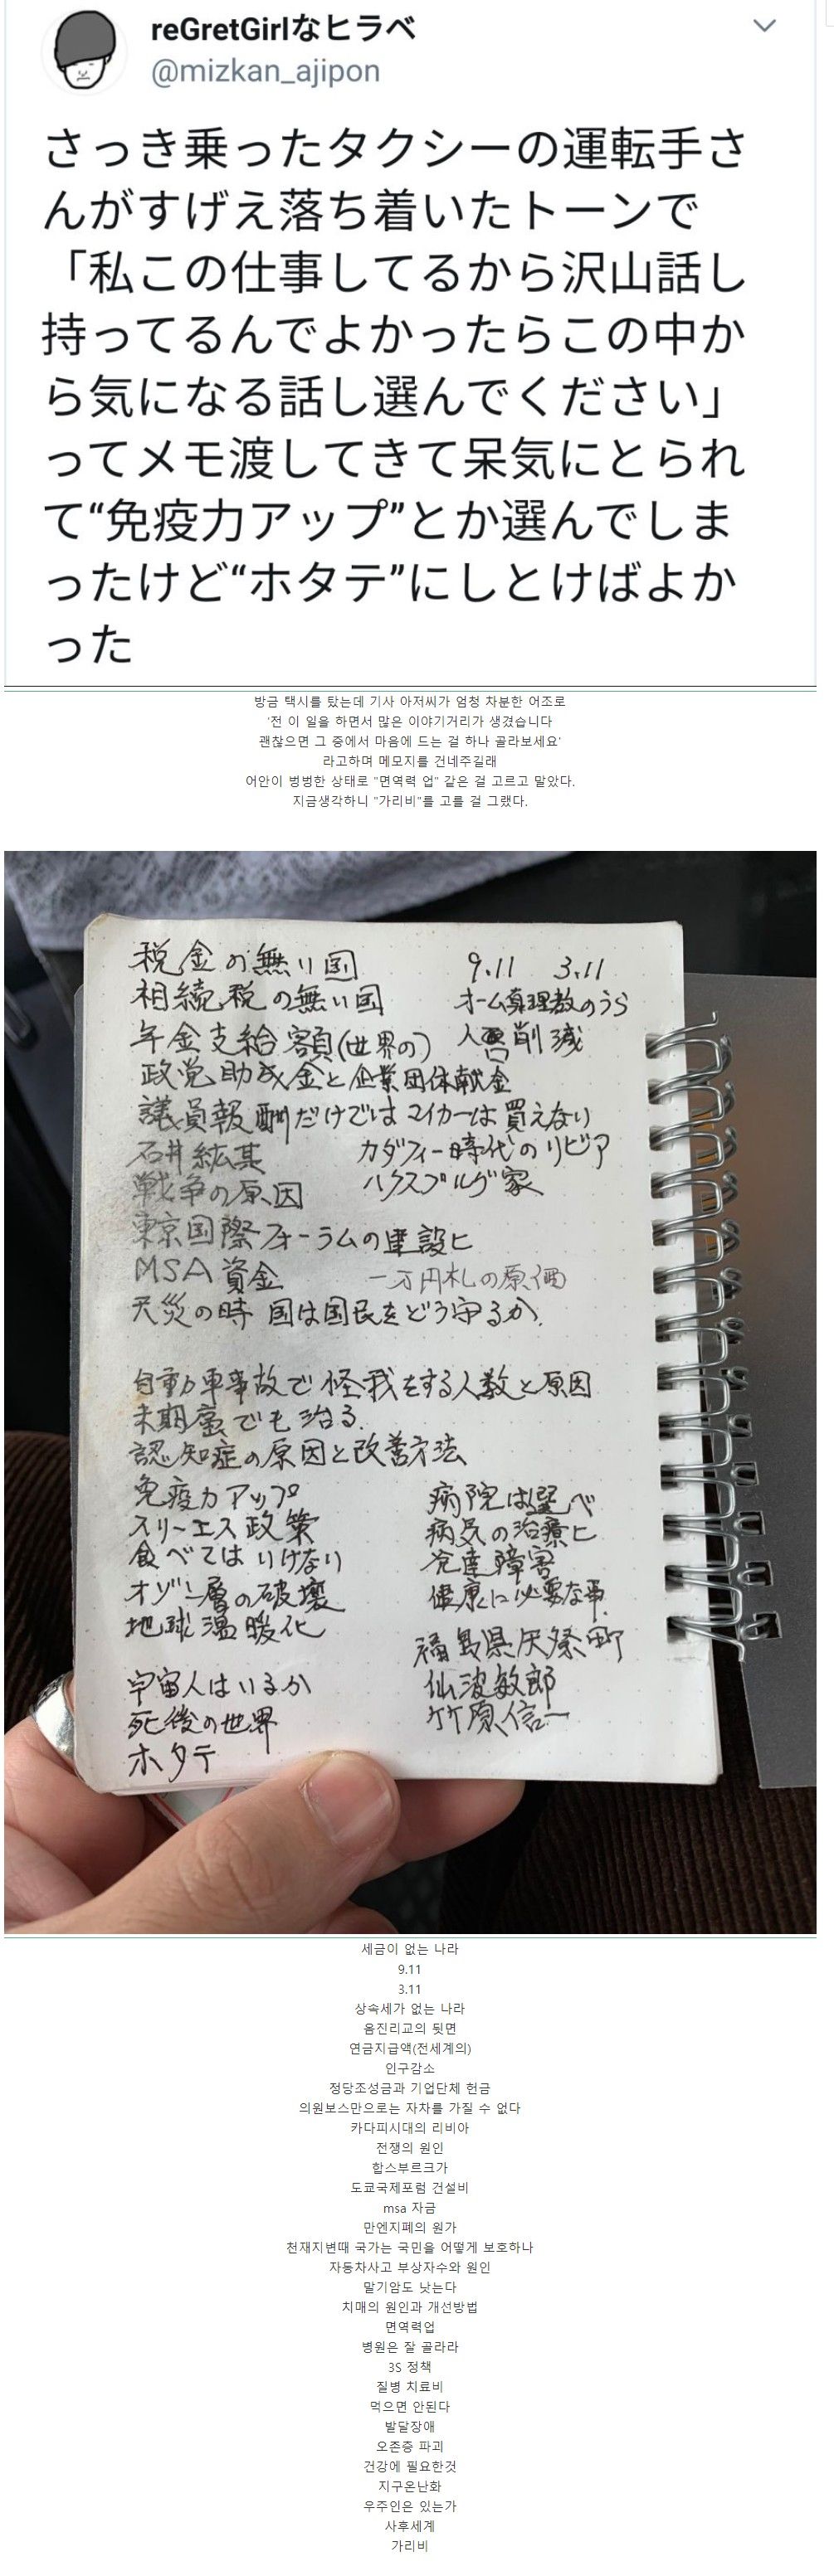 reGretGirlなヒラベ
@mizkan_ajipon
さっき乗ったタクシーの運転手さ
んがすげえ落ち着いたトーンで
「私この仕事してるから沢山話し
持ってるんでよかったらこの中か
ら気になる話し選んでください」
ってメモ渡してきて呆気にとられ
て“免疫力アップ”とか選んでしま
ったけど“ホタテ”にしとけばよか
った
방금 택시를 탔는데 기사 아저씨가 엄청 차분한 어조로
'전 이 일을 하면서 많은 이야기거리가 생겼습니다
괜찮으면 그 중에서 마음에 드는 걸 하나 골라보세요'
라고하며 메모지를 건네주길래
어안이 벙벙한 상태로 "면역력 업" 같은 걸 고르고 말았다.
지금생각하니 "가리비"를 고를 걸 그랬다.
税金の無い国 9.11 3.11
相続税の無い国 オーム真理教のうら
年金支給額(世界の) 人口削減
政党助成金と企業団体献金
議員報酬だけではマイカーは買えない
石井紘基 カダフィー時代のリビア
戦争の原因 ハクスブルグ家
東京国際フォーラムの建設ヒ
MSA資金 一万円札の原価
天災の時 国は国民をどう守るか.
自動車事故で怪我をする人数と原因
末期癌でも治る.
認知症の原因と改善方法
免疫力アップ 病院は選べ
スリーエス政策 病気の治療ヒ
食べてはいけない 発達障害
オゾン層の破壊 健康に必要な事.
地球温暖化
福島県矢祭町
宇宙人はいるか 仙波敏郎
死後の世界 竹原信一
ホタテ
세금이 없는 나라
9.11
3.11
상속세가 없는 나라
옴진리교의 뒷면
연금지급액(전세계의)
인구감소
정당조성금과 기업단체 헌금
의원보스만으로는 자차를 가질 수 없다
카다피시대의 리비아
전쟁의 원인
합스부르크가
도쿄국제포럼 건설비
msa 자금
만엔지폐의 원가
천재지변때 국가는 국민을 어떻게 보호하나
자동차사고 부상자수와 원인
말기암도 낫는다
치매의 원인과 개선방법
면역력업
병원은 잘 골라라
3S 정책
질병 치료비
먹으면 안된다
발달장애
오존층 파괴
건강에 필요한것
지구온난화
우주인은 있는가
사후세계
가리비